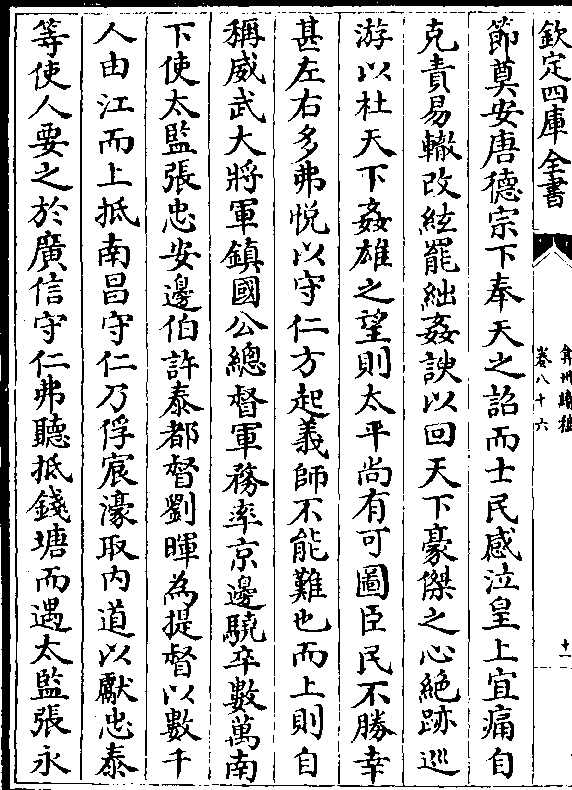 欽定四庫全書
弇州續稿
卷八十六
十一
節奠安唐德宗下奉天之詔而士民感泣皇上宜痛自
克責易轍改絃罷絀姦諛以回天下豪傑之心絶跡巡
游以杜天下姦雄之望則太平尚有可圖臣民不勝幸
甚左右多弗悅以守仁方起義師不能難也而上則自
稱威武大將軍鎮國公總督軍務率京邊驍卒數萬南
下使太監張忠安邊伯許泰都督劉暉為提督以數千
人由江而上抵南昌守仁乃俘宸濠取內道以獻忠泰
等使人要之於廣信守仁弗聽抵錢塘而遇太監張永